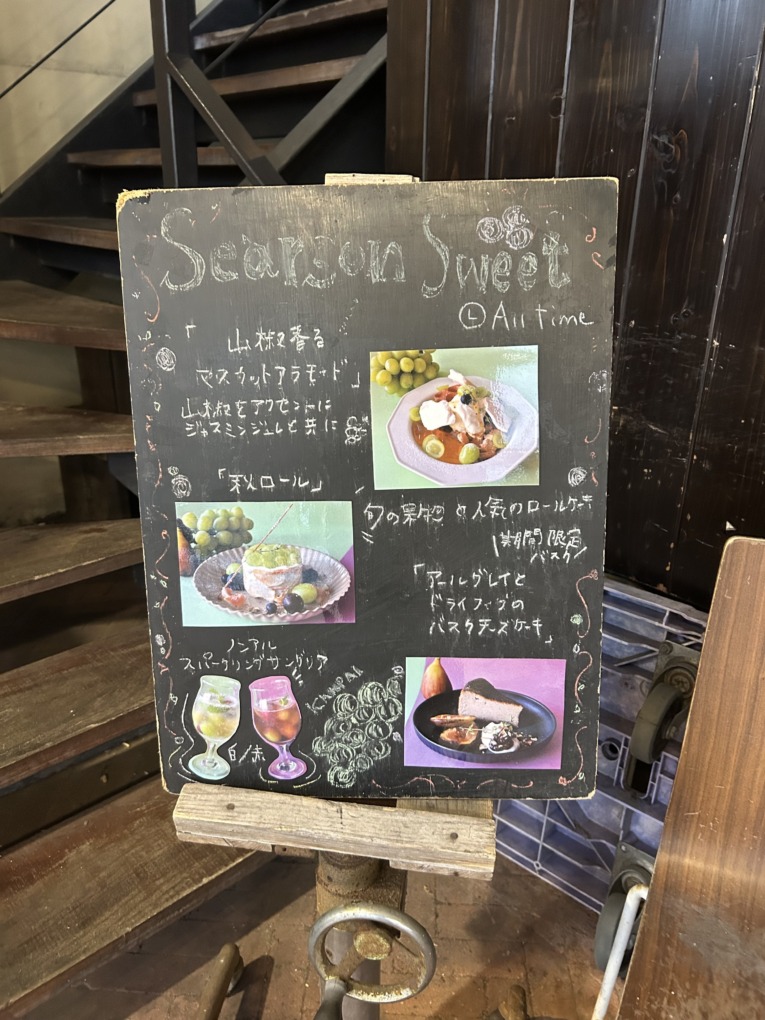 Searson Sweet
Ⓛ All time
「山椒香る
マスカットアラモード」
山椒をアクセントに
ジャスミンジュレと共に
「秋ロール」
旬の果物と人気のロールケーキ
期間限定
バスク
「アールグレイと
ドライフィグの
バスクチーズケーキ」
ノンアル
スパークリングサングリア
白/赤
KANPAI